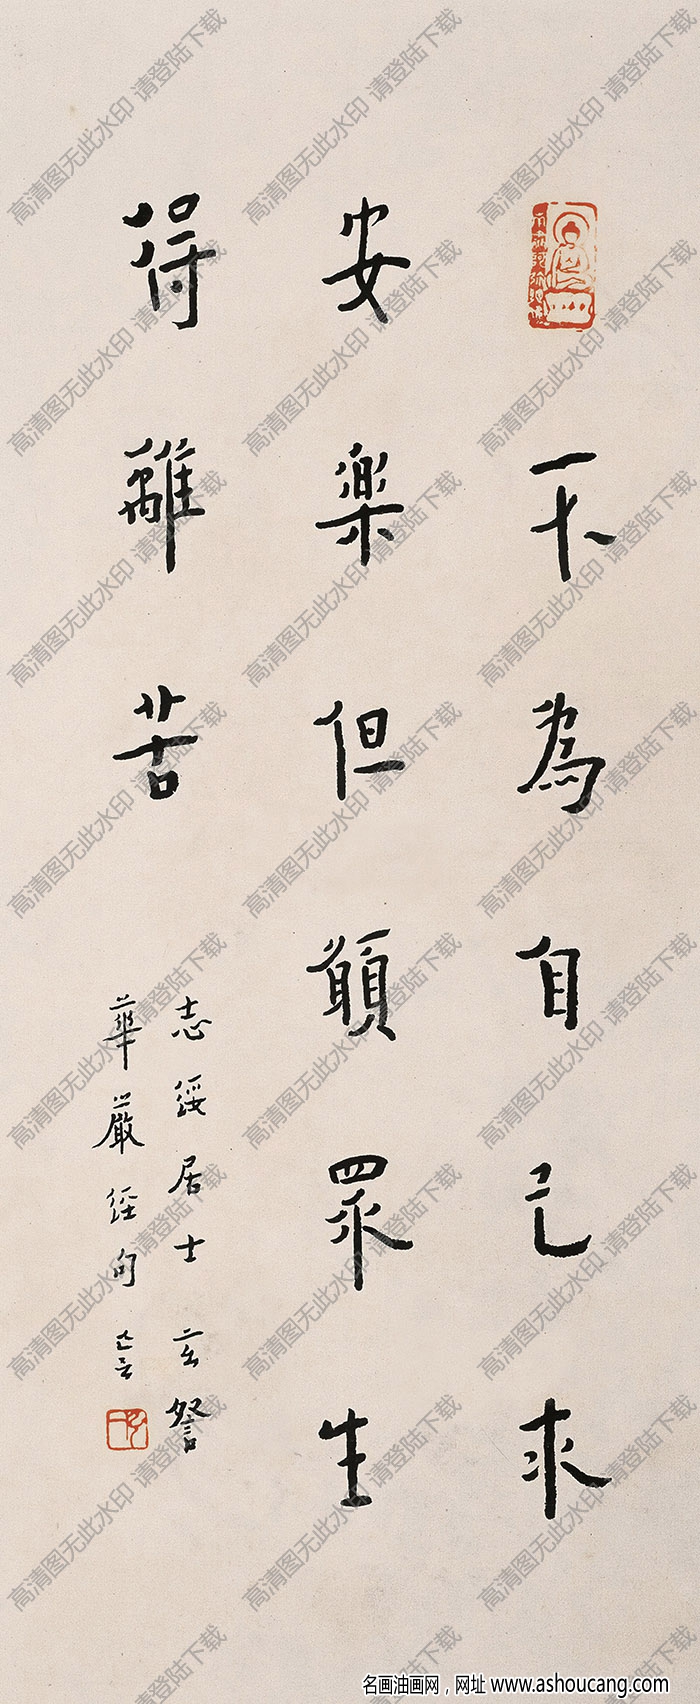 不為自己求
安樂但願眾生
得離苦
志綬居士 玄詧
華嚴經句 亡言
高清图无此水印 请登陆下载
名画油画网，网址 www.ashoucang.com